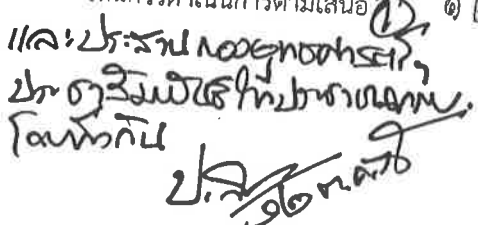 ดำเนินการตามเสนอ
และประสานกองยุทธศาสตร์ฯ
ประชาสัมพันธ์ให้ประชาชนทราบ
โดยทั่วกัน
๑๒ ต.ค.